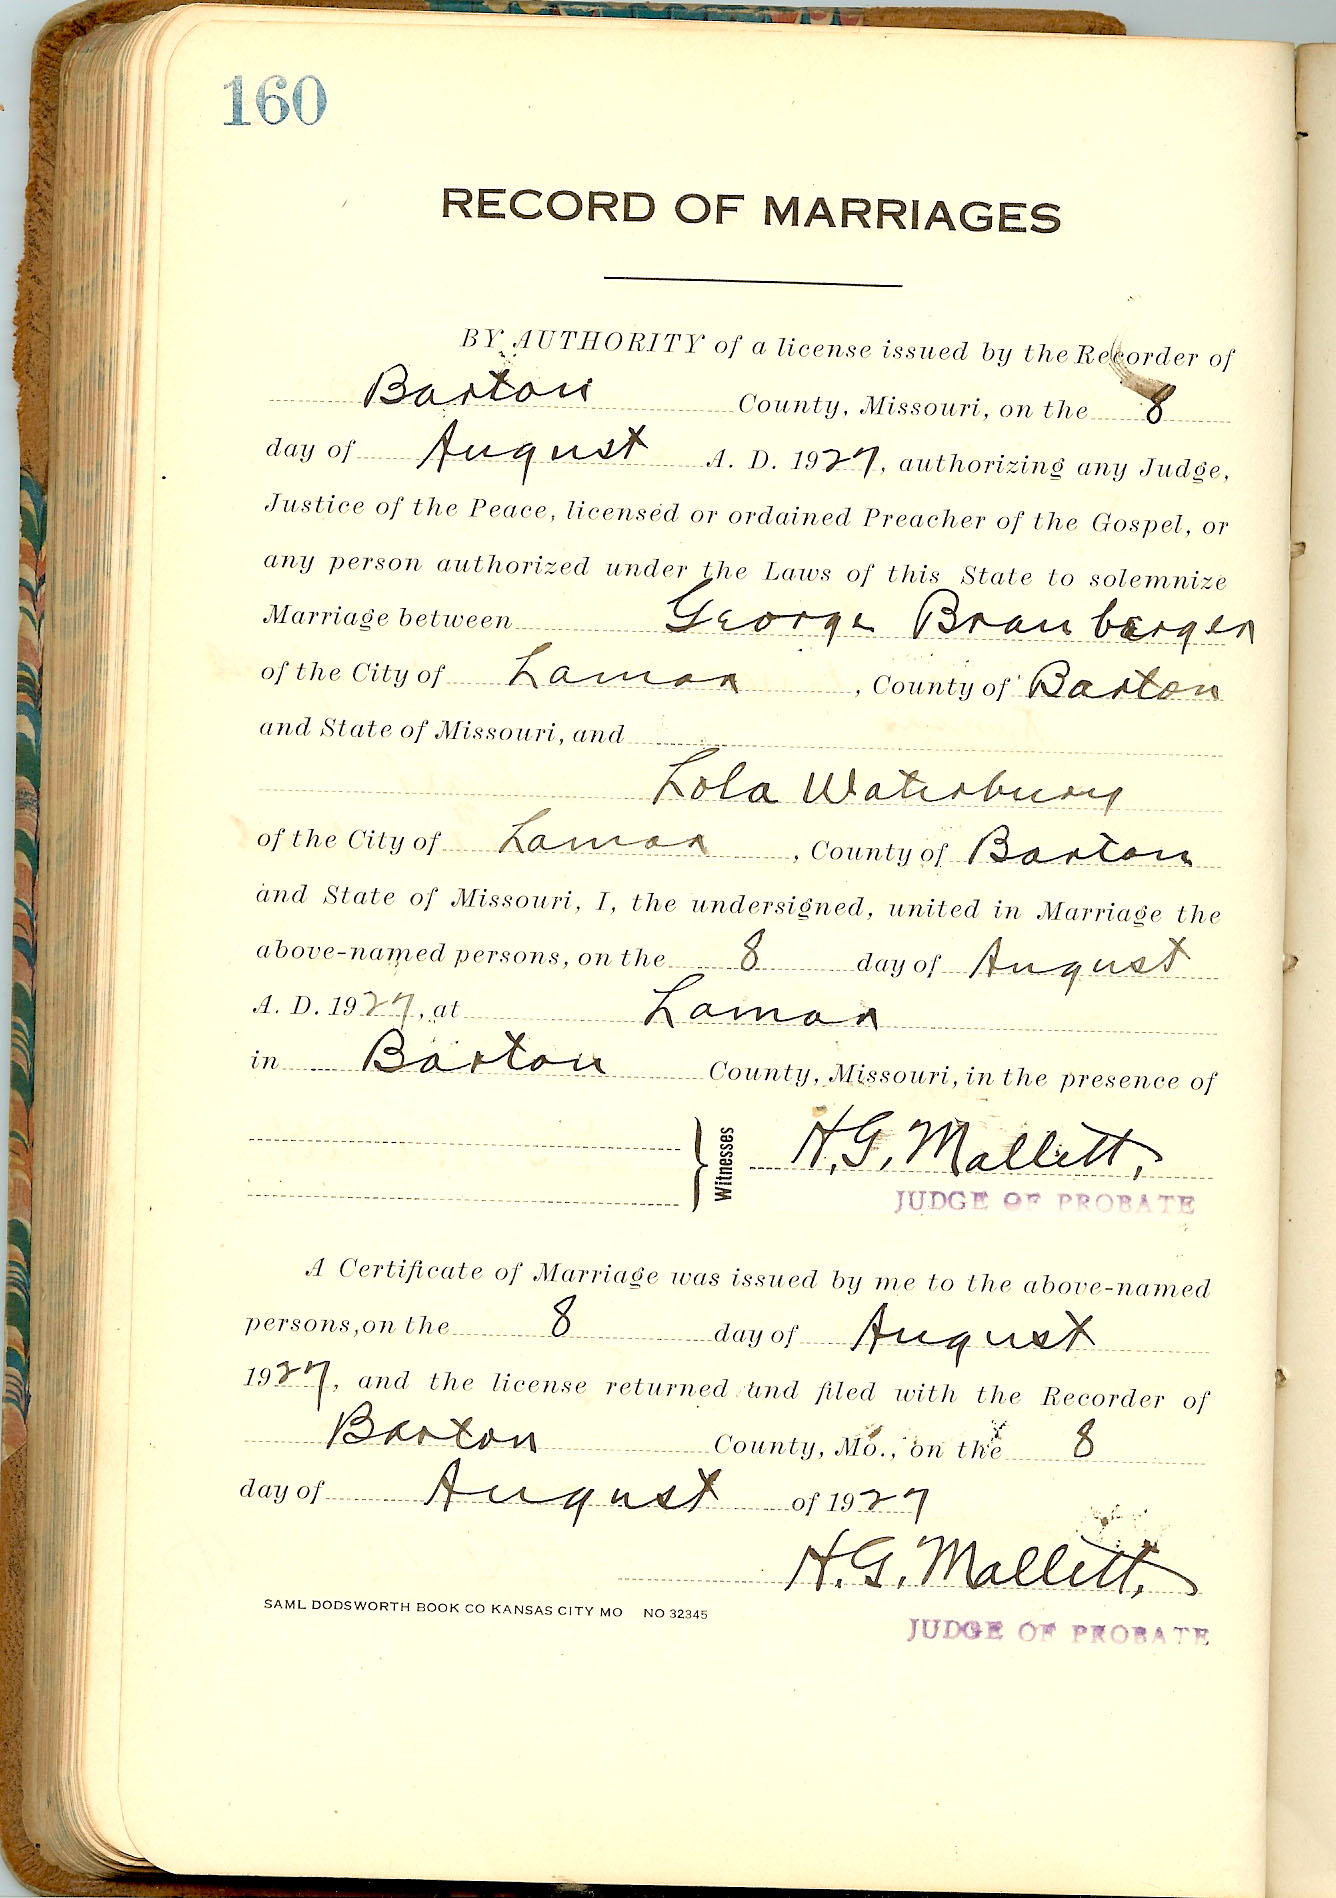 160
RECORD OF MARRIAGES
BY AUTHORITY of a license issued by the Recorder of
Barton County, Missouri, on the 8
day of August A. D. 1927, authorizing any Judge,
Justice of the Peace, licensed or ordained Preacher of the Gospel, or
any person authorized under the Laws of this State to solemnize
Marriage between George Branberger
of the City of Lamar, County of Barton
and State of Missouri, and
Lola Waterbury
of the City of Lamar, County of Barton
and State of Missouri, I, the undersigned, united in Marriage the
above-named persons, on the 8 day of August
A. D. 1927, at Lamar
in Barton County, Missouri, in the presence of
Witnesses H. G. Mallett.
JUDGE OF PROBATE
A Certificate of Marriage was issued by me to the above-named
persons, on the 8 day of August
1927, and the license returned and filed with the Recorder of
Barton County, Mo., on the 8
day of August of 1927
H. G. Mallett.
SAML DODSWORTH BOOK CO KANSAS CITY MO NO 32345
JUDGE OF PROBATE